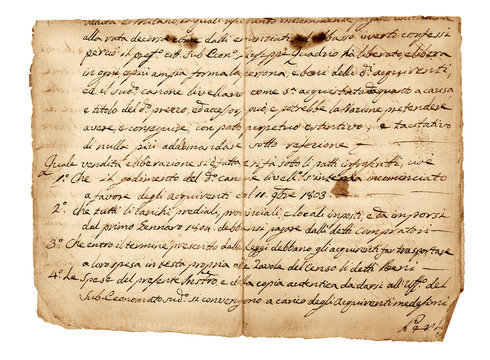 alla rata decorsa come dalli enunciati da basso, inverti confessi
perciò il pref.° citt. Sub Econ.° Giuseppe Quadrio hà liberato, e libera
in ogni più ampia forma la persona, e beni delli d.ⁱ acquirenti,
ed il sud.° canone livellario come s.ᵃ acquistato da a causa
e titolo del d.° prezzo, ed accessorj può, e potrebbe la Nazione pretendere
avere, e conseguire, con patto perpetuo estentivo, e tacitativo
di nulla più addimandare sotto refezione
Quale vendita, e liberazione si è fatta e si fà sotto li patti infrascritti, cioè
1.° Che il godimento del d.° canone livell.° s'intenda incominciato
a favore degli acquirenti col 11. 9bre 1803.
2.° che tutti li carichi prediali, provinciali, e locali imposti, e da imporsi
dal primo Gennaro 1804. debbansi pagare dalli detti compratori
3.° Che entro il termine prescritto dalle Leggi debbano gli acquirenti far trasportare
a loro spesa in testa propria alle Tavole del Censo li detti Beni
4.° Le Spese del presente Instro, e della copia autentica da darsi all'Uff.° del
Sub-Economato sud.° si convengono a carico degli Acquirenti medesimi